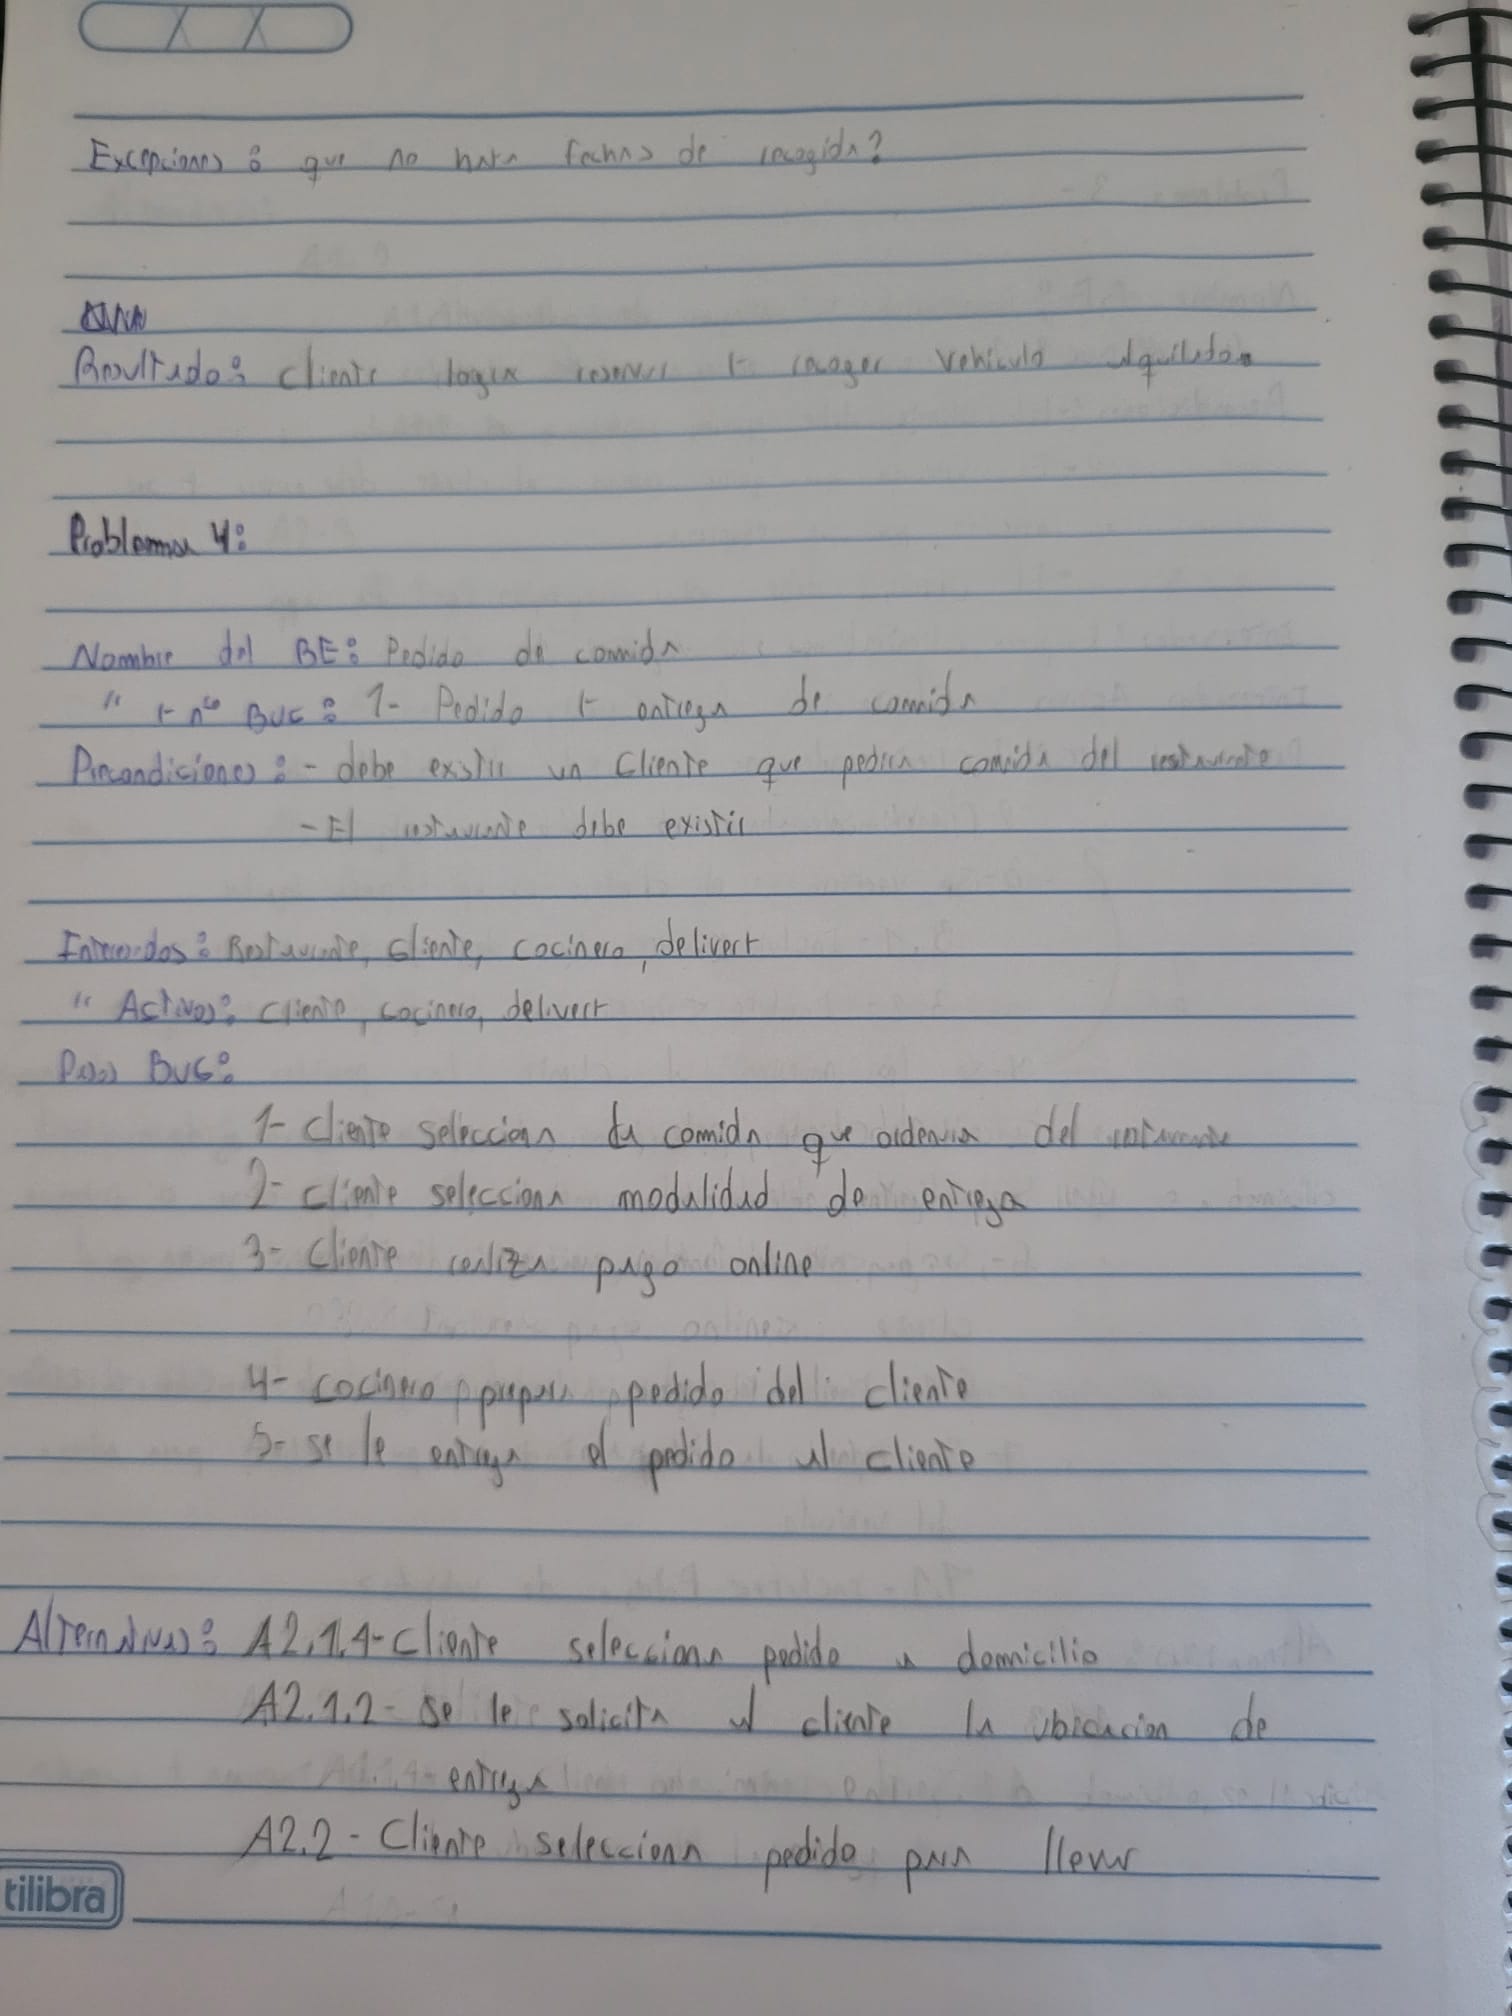 Excepciones: que no haya fechas de recogida?
Resultado: cliente logra reservar y recoger vehiculo alquilado.
Problema 4:
Nombre del BE: Pedido de comida
" y nro BUC: 1- Pedido y entrega de comida
Precondiciones: - debe existir un cliente que pedira comida del restaurante
- El restaurante debe existir
Interesados: Restaurante, cliente, cocinero, delivery
" Activos: cliente, cocinero, delivery
Pasos BUC:
1- cliente selecciona la comida que ordenara del restaurante
2- cliente selecciona modalidad de entrega
3- cliente realiza pago online
4- cocinero prepara pedido del cliente
5- se le entrega el pedido al cliente
Alternativas: A2.1.1- cliente selecciona pedido a domicilio
A2.1.2- se le solicita al cliente la ubicacion de
entrega
A2.2- Cliente selecciona pedido para llevar
tilibra